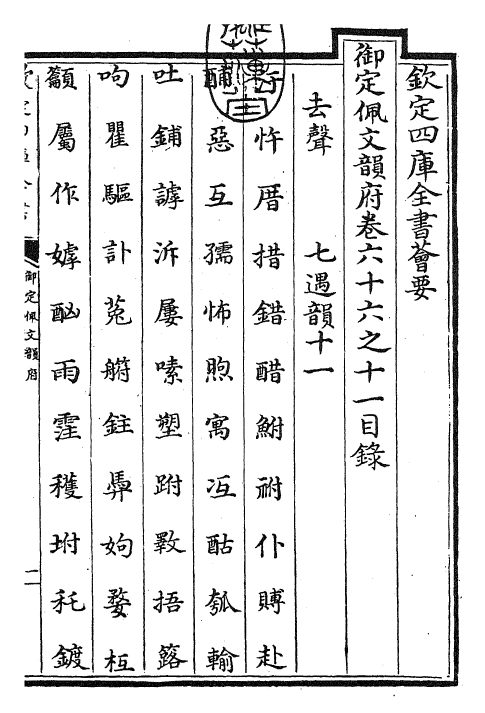 欽定四庫全書薈要
御定佩文韻府卷六十六之十一目錄
去聲 七遇韻十一
忤厝措錯醋鮒祔仆賻赴
酺惡互孺怖煦寓冱酤瓠輸
吐鋪謼泝屢嗉塑跗斁捂簬
呴瞿驅訃菟艑鉒馵姁婺枑
籲屬作嫭酗雨霔穫坿秅鍍
御定佩文韻府
二